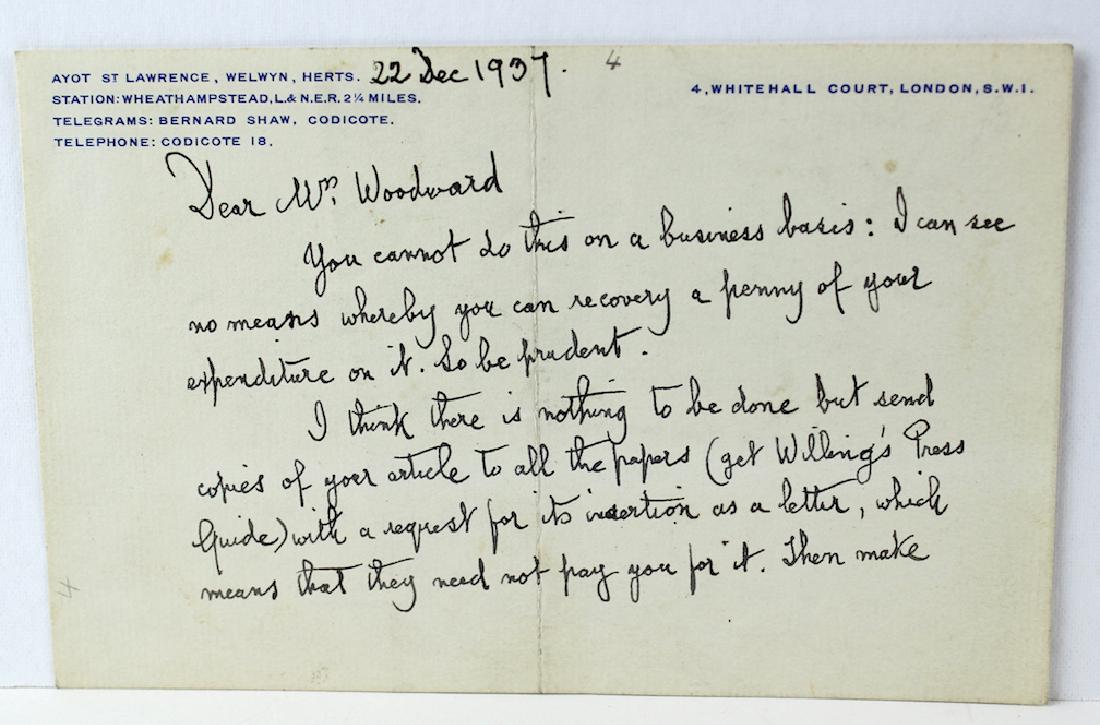 AYOT ST LAWRENCE, WELWYN, HERTS. 22 Dec 1937. 4
STATION: WHEATHAMPSTEAD, L.& N.E.R. 2¼ MILES. 4, WHITEHALL COURT, LONDON, S.W.1.
TELEGRAMS: BERNARD SHAW, CODICOTE.
TELEPHONE: CODICOTE 18.
Dear Mrs. Woodward
You cannot do this on a business basis: I can see
no means whereby you can recovery a penny of your
expenditure on it. So be prudent.
I think there is nothing to be done but send
copies of your article to all the papers (get Willing's Press
Guide) with a request for its insertion as a letter, which
means that they need not pay you for it. Then make
4